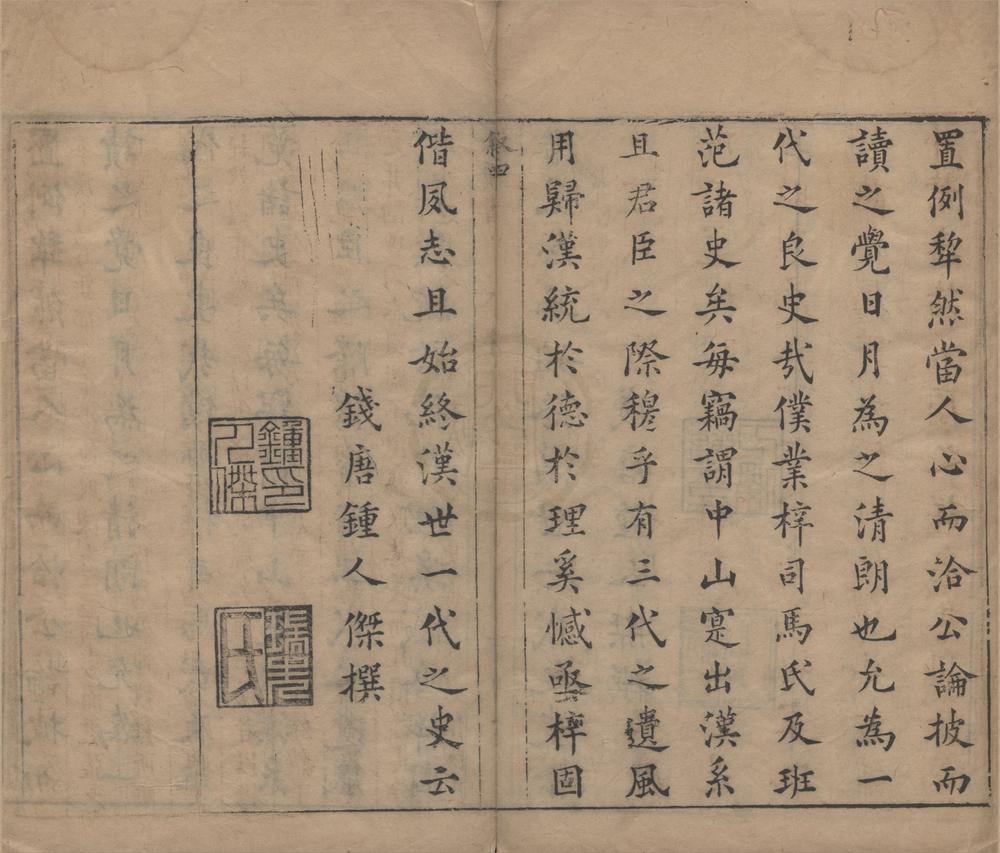 置例犂然當人心而洽公論披而
讀之覺日月為之清朗也允為一
代之良史㦲僕業梓司馬氏及班
范諸史矣每竊謂中山寔出漢系
且君臣之際穆乎有三代之遺風
用歸漢統於德於理奚憾亟梓固
敘四
偕夙志且始終漢世一代之史云
錢唐鍾人傑撰
鍾印人傑
瑞先氏